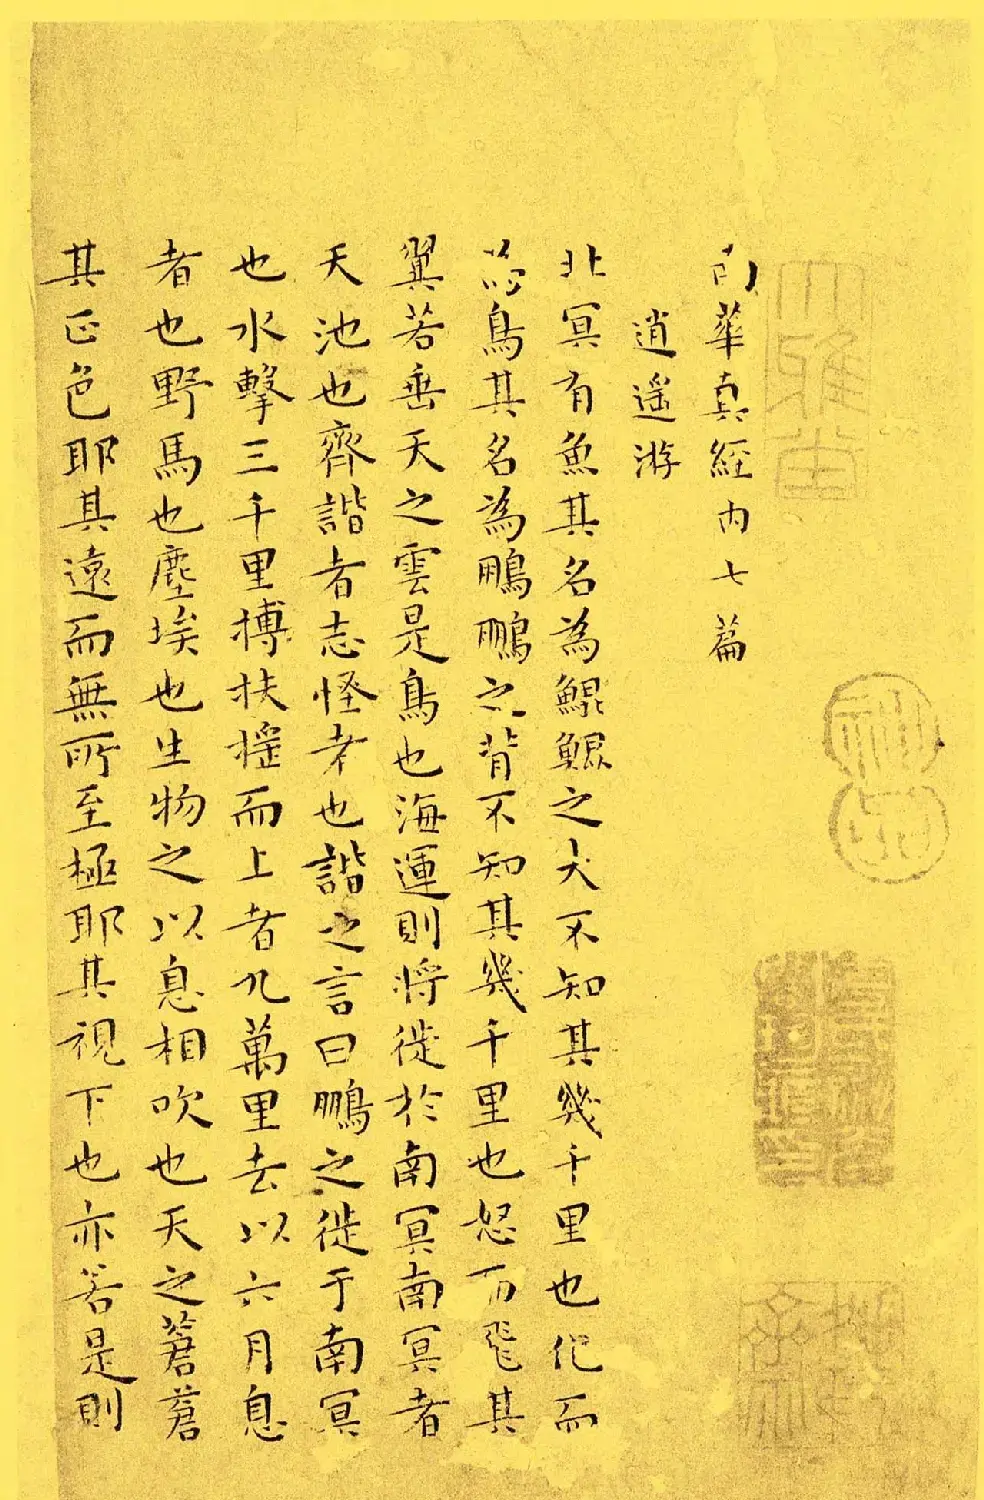 南華真經內七篇
逍遙游
北冥有魚其名為鯤鯤之大不知其幾千里也化而
為鳥其名為鵬鵬之背不知其幾千里也怒而飛其
翼若垂天之雲是鳥也海運則將徙於南冥南冥者
天池也齊諧者志怪者也諧之言曰鵬之徙于南冥
也水擊三千里搏扶摇而上者九萬里去以六月息
者也野馬也塵埃也生物之以息相吹也天之蒼蒼
其正色耶其遠而無所至極耶其視下也亦若是則